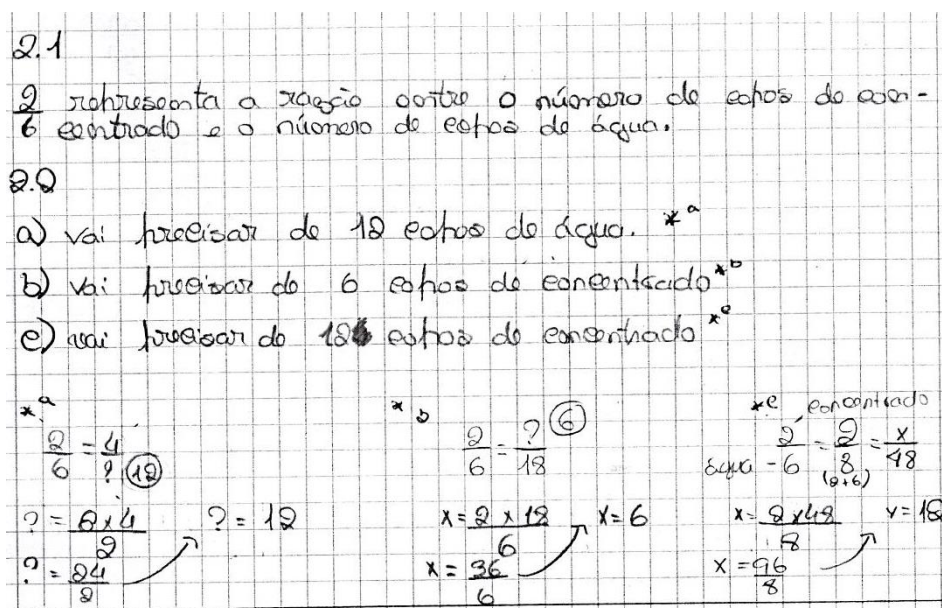 2.1
2/6 representa a razão entre o número de copos de con-
centrado e o número de copos de água.
2.2
a) vai precisar de 12 copos de água. *a
b) vai precisar de 6 copos de concentrado *b
c) vai precisar de 12 copos de concentrado *c
*a
2/6 = 4/? (12)
? = 6x4/2 ? = 12
? = 24/2
*b
2/6 = ?/18 (6)
x = 2 x 18/6 x = 6
x = 36/6
*c concentrado
água - 2/6 = 2/8 = x/48
(2+6)
x = 2x48/8 x = 12
x = 96/8